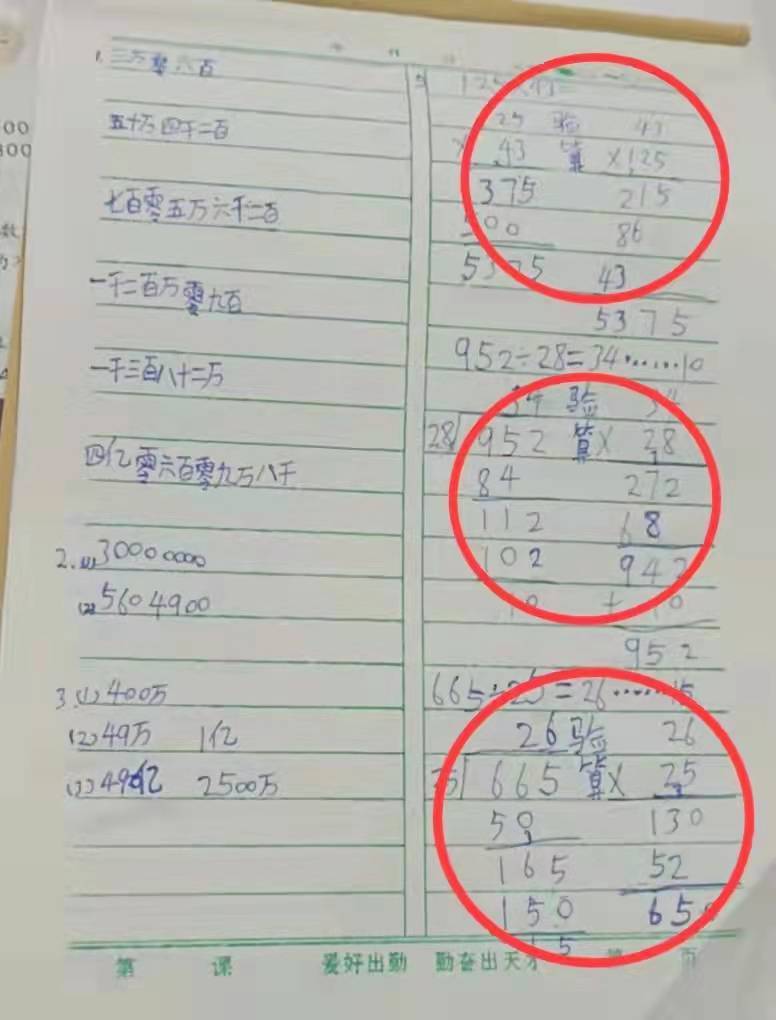 1. 三万零六百
五十万四千二百
七百零五万六千二百
一千二百万零九百
一千三百八十二万
四亿零六百零九万八千
2. (1) 30000000
(2) 5604900
3 (1) 400万
(2) 49万 1亿
(3) 490亿 2500万
验 43
× 43 算 ×125
375 215
500 86
5375 43
5375
952÷28=34……10
34 验 34
28 952 算 × 28
84 272
112 68
102 942
10 + 10
952
665÷25=26……15
26 验 26
25 665 算 × 25
50 130
165 52
150 650
15
第 课 爱好出勤 勤奋出天才 第 页